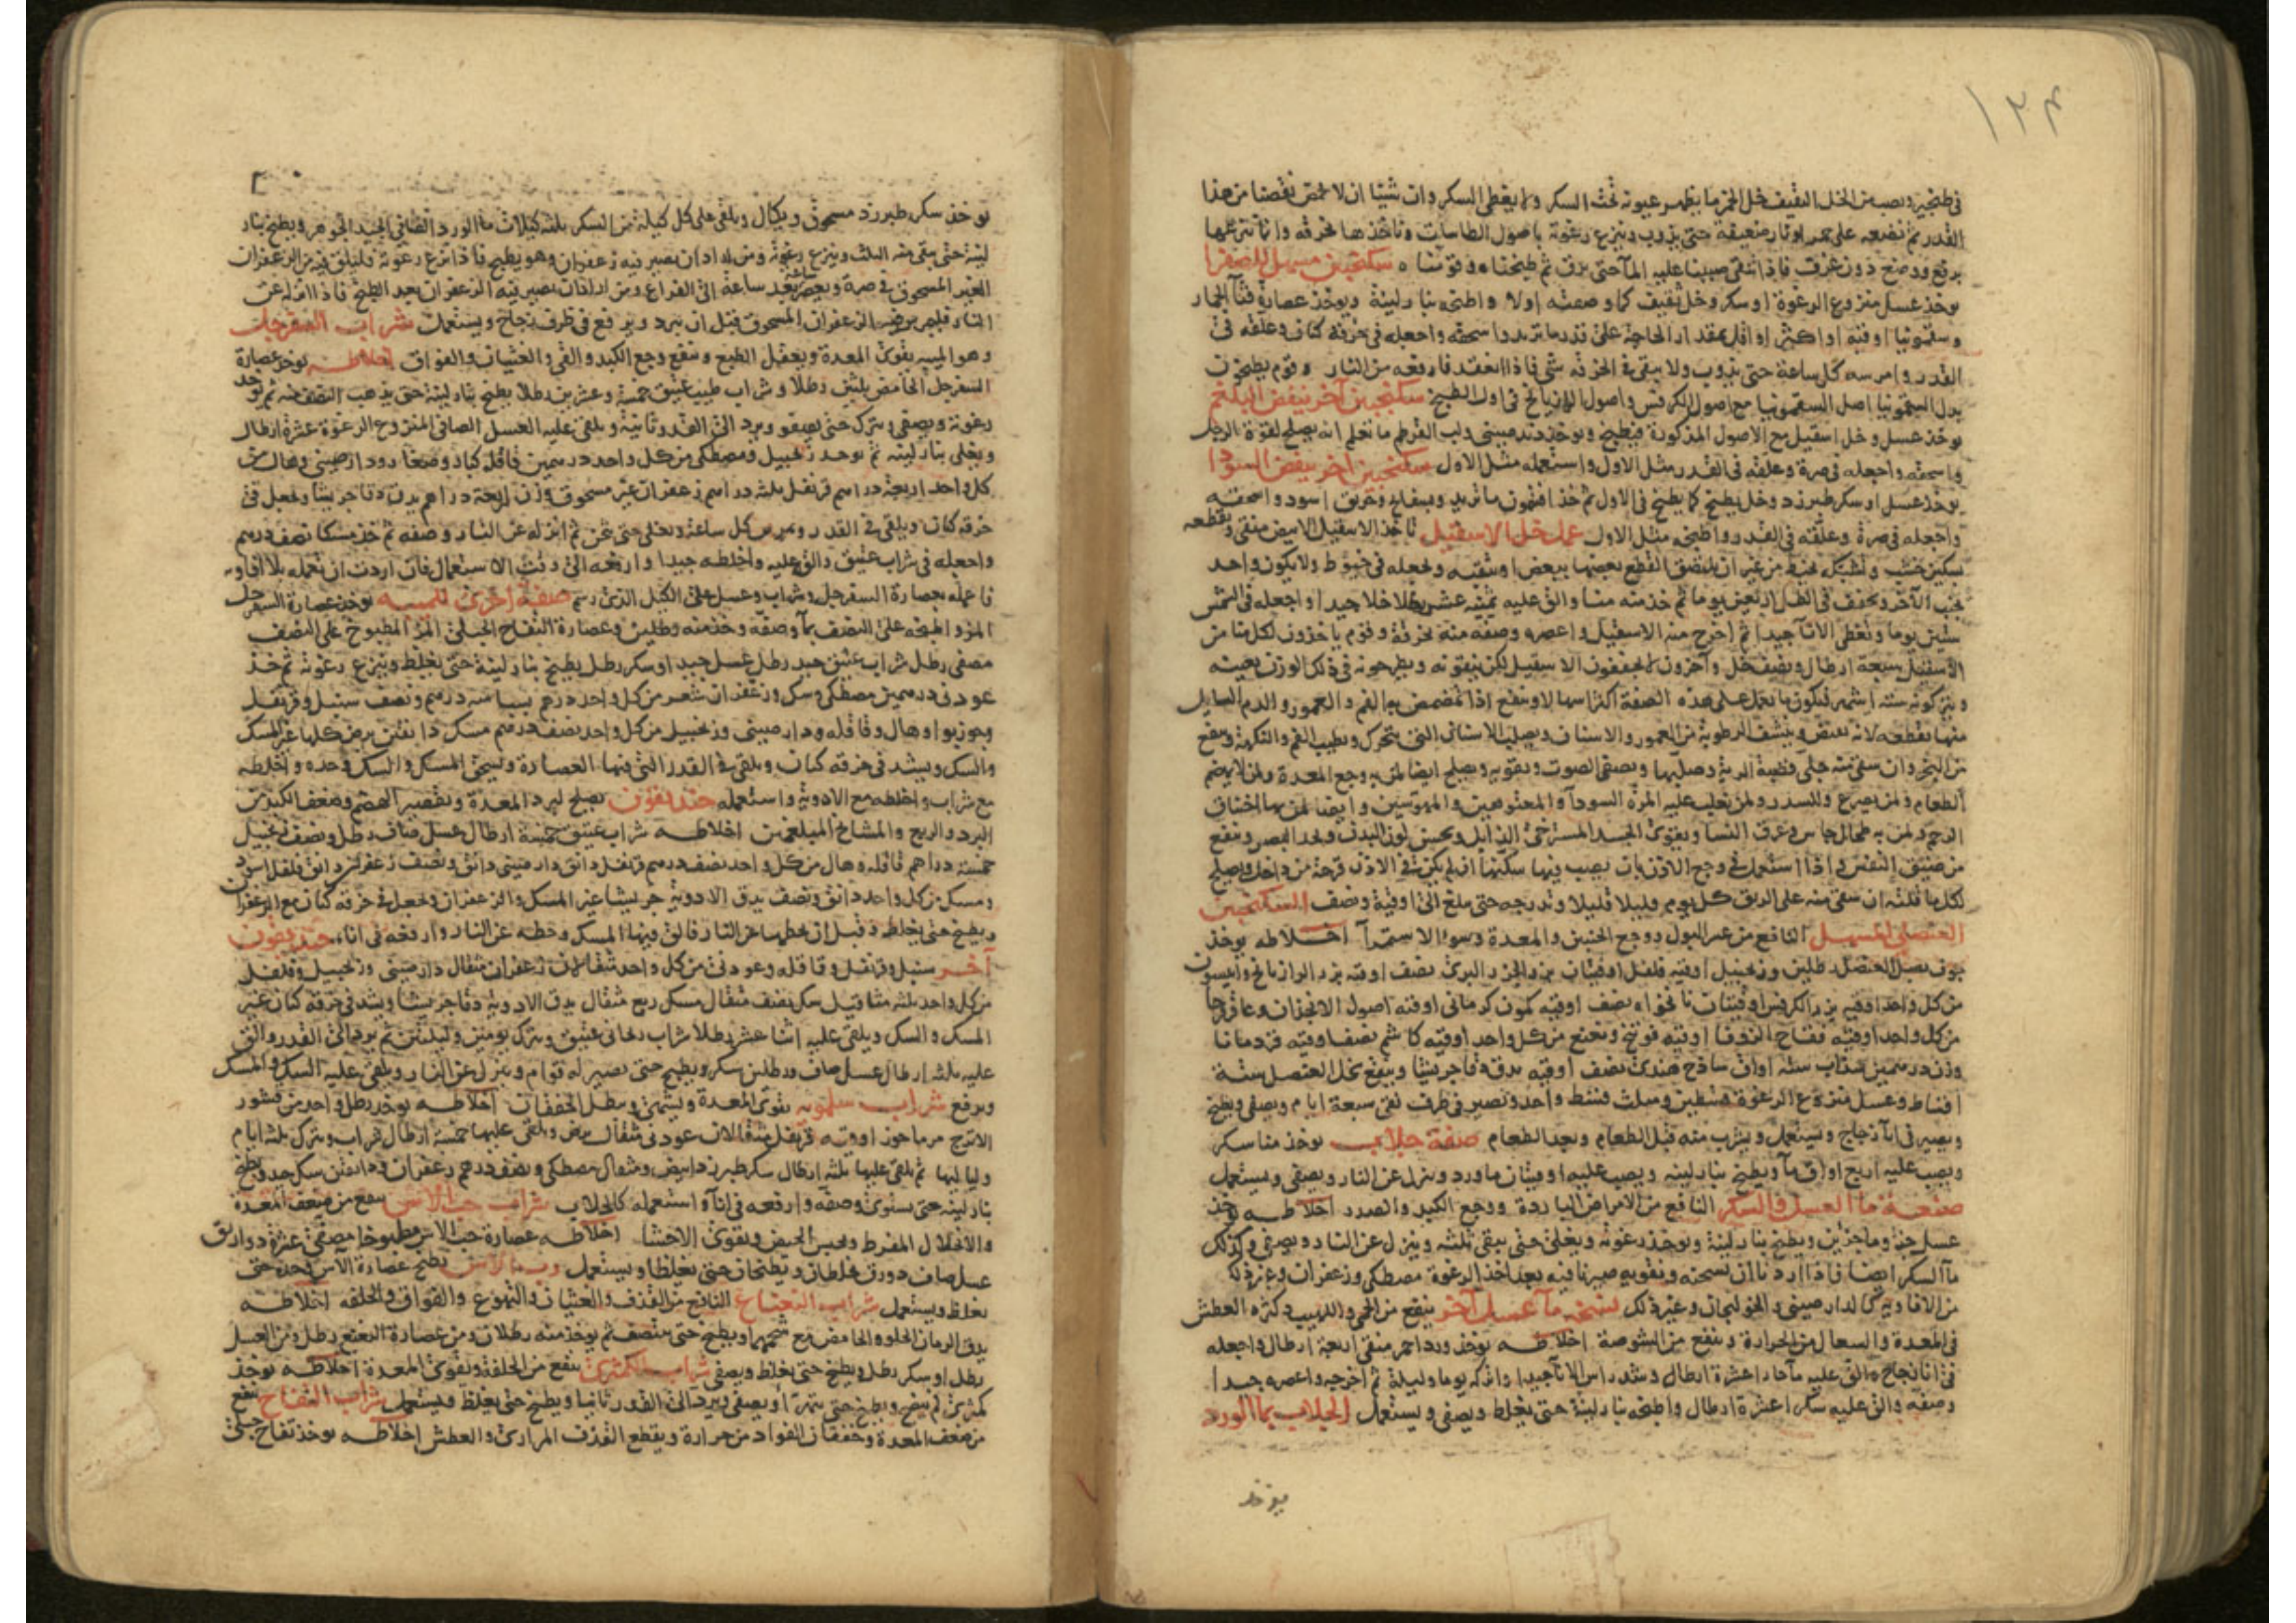 ١٢٣
في طنجير ويصب من الخل الثقيف خل الخمر ما يظهر عيونه تحت السكر ولا يغطي السكر وان شيئا ان لا يحمض نقصنا من هذا
القدر ثم نضعه على جمر او نار ضعيفة حتى يذوب وينزع رغوته باصول الطاسات وناخذها بخرقة
سكنجبين مسهل للصفرا
يوخذ عسل منزوع الرغوة او سكر وخل ثقيف كما وصفته اولا واطبخه بنار لينة ويوخذ عصارة قثا الحمار
وسقمونيا اوقية او اكثر او اقل بمقدار الحاجة على قدر ما تريد واسحقه واجعله في خرقة كتان وعلقه في
القدر وامرسه كل ساعة حتى يذوب ولا يبقى في الخرقة شي فاذا انعقد فارفعه من النار وقوم يطبخون
بدل السقمونيا اصل السقمونيا مع اصول الكرفس واصول الرازيانج في اول الطبخ سكنجبين آخر ينفض البلغم
يوخذ عسل وخل اسقيل مع الاصول المذكورة فيطبخ ويوخذ تربد صيني ولب القرطم
واسحقه واجعله في صرة وعلقه في القدر مثل الاول واستعمله مثل الاول سكنجبين آخر ينفض السودا
يوخذ عسل او سكر طبرزد وخل يطبخ كما يطبخ في الاول ثم خذ افتيمون ما تريد وبسفايج وخربق اسود واسحقه
واجعله في صرة وعلقه في القدر واطبخه مثل الاول عمل خل الاسقيل تاخذ الاسقيل الابيض منقى وتقطعه
بسكين خشب وتشبك بخيط من غير ان يلتصق القطع بعضها ببعض
بجنب الآخر وتجفف في الظل اربعين يوما ثم خذ منه منا والق عليه عشر رطلا خلا جيدا واجعله في الشمس
ستين يوما وتغطي الانآ جيدا ثم اخرج منه الاسقيل واعصره وصفه منه بخرقة وقوم ياخذون لكل منا من
الاسقيل سبعة ارطال ونصف خل وآخرون لا يجففون الاسقيل لكن ينقونه ويطرحونه في ذلك الوزن بعينه
ويتركونه ستة اشهر فيكون ما يعمل على هذه الصفة اكثر اسهالا وينفع اذا تمضمض به الفم والعمور والدم السايل
منها بقطعه لانه يقبض وينشف الرطوبة من العمور والاسنان ويصلب الاسنان التي تتحرك ويطيب الفم والنكهة وينفع
من البخر وان سقي منه جلى قصبة الرية وصلبها ويصفي الصوت ويقويه ويصلح ايضا لمن به وجع المعدة ولمن لا يهضم
الطعام ولمن يصرع وللسدر ولمن يغلب عليه المرة السودآ والمعتوهين والمهوسين وايضا لمن بها اختناق
الرحم ولمن به طحال جاس وعرق النسا ويقوي الجسد المسترخي الذابل ويحسن لون البدن ويحد البصر وينفع
من ضيق النفس واذا استعمل في وجع الاذن بان يصب فيها سكنها ان لم يكن في الاذن قرحة من داخل ويصلح
لكل ما قلته ان سقي منه على الريق كل يوم قليلا قليلا وتدرجه حتى يبلغ الى اوقية ونصف السكنجبين
العنصلي المسهل النافع من عسر البول ووجع الجنبين والمعدة وسوء الاستمرآ اخلاطه يوخذ
جوف بصل العنصل رطلين وزنجبيل اوقية فلفل اوقيتان بزر الجزر البري نصف اوقية بزر الرازيانج وانيسون
من كل واحد اوقية بزر الكرفس اوقيتان نانخواه نصف اوقية كمون كرماني اوقية اصول الانجذان وعاقرقرحا
من كل واحد اوقية فقاح الزوفا اوقية فوتنج ونعنع من كل واحد اوقية كاشم نصف اوقية قردمانا
وزن درهمين سذاب ستة اواق ساذج هندي نصف اوقية يدق دقا جريشا وينقع بخل العنصل ستة
اقساط وعسل منزوع الرغوة قسطين ومثلث قسط واحد وتصير في ظرف نقي سبعة ايام ويصفى ويطبخ
ويصير في انآ زجاج ويستعمل ويشرب منه قبل الطعام وبعد الطعام صفة جلاب يوخذ منا سكر
ويصب عليه اربع اواق مآ ويطبخ بنار لينه ويصب عليه اوقيتان ماورد وينزل عن النار ويصفى ويستعمل
صنعة ما العسل والسكر النافع من الامراض الباردة ووجع الكبد والصدر اخلاطه يوخذ
عسل جزء وما جزئين ويطبخ بنار لينة ويوخذ رغوته ويغلى حتى يبقى ثلثه وينزل عن النار ويصفى وكذلك
مآ السكر ايضا فاذا اردنا ان نسخنه ونقويه صيرنا فيه بعد اخذ الرغوة مصطكى وزعفران وغير ذلك
من الافاويه كالدارصيني والخولنجان وغير ذلك نسخة مآ عسل آخر ينفع من الحمى واللهيب وكثرة العطش
في المعدة والسعال من الحرارة وينفع من الشوصة اخلاطه يوخذ ورد احمر منقى اربعة ارطال واجعله
في انا زجاج والق عليه مآ حار اعشرة ارطال وشد راس الانآ جيدا واتركه يوما وليلة ثم اخرجه واعصره جيدا
وصفه والق عليه سكر اعشرة ارطال واطبخه بنار لينة حتى يغلظ ويصفى ويستعمل الجلاب بما الورد
يوخذ
يوخذ سكر طبرزد مسحوق ويكال ويلقى على كل كيلة من السكر ثلثه كيلات ما الورد الصافي الجيد الجوهر ويطبخ بنار
لينة حتى يبقى منه الثلث وينزع رغوته ومن اراد ان يصير فيه زعفران وهو يطبخ فاذا نزع رغوته فليلق فيه من الزعفران
الغير المسحوق في صرة ويعصر ساعة بعد ساعة الى الفراغ ومن اراد ان يصير فيه الزعفران بعد الطبخ فاذا انزله عن
النار فليمرس الزعفران المسحوق قبل ان يبرد ويرفع في ظرف زجاج ويستعمل شراب السفرجل
وهو الميبه يقوي المعدة ويعقل الطبع وينفع وجع الكبد والقي والغثيان والفواق اخلاطه يوخذ عصارة
السفرجل الحامض ثلثين رطلا وشراب طيب عتيق خمسة وعشرين رطلا يطبخ بنار لينة حتى يذهب النصف منه ثم يوخذ
رغوته ويصفى ويترك حتى يصفو ويرد الى القدر ثانية ويلقى عليه العسل الصافي المنزوع الرغوة عشرة ارطال
ويغلى بنار لينه ثم يوخذ زنجبيل ومصطكى من كل واحد درهمين قاقلة كبار وصغار ودارصيني وهال من
كل واحد اربعة دراهم قرنفل ثلثة دراهم زعفران غير مسحوق وزن اربعة دراهم يدق دقا جريشا ويجعل في
خرقة كتان ويلقى في القدر ويمرس كل ساعة ويغلى حتى يثخن ثم انزله عن النار وصفه ثم خذ مسكا نصف درهم
واجعله في شراب عتيق والق عليه واخلطه جيدا وارفعه الى وقت الاستعمال فان اردت ان تعمله بلا افاويه
فاعمله بعصارة السفرجل وشراب وعسل على الكيل الذي رسم صفة اخرى للميبه يوخذ عصارة السفرجل
المز واطبخه على النصف وصفه وخذ منه رطلين وعصارة التفاح الجبلي المز المطبوخ على النصف
مصفى رطل شراب عتيق جيد رطل عسل جيد او سكر رطل يطبخ بنار لينة حتى يغلظ وينزع رغوته ثم خذ
عود ني درهمين مصطكى وسك وزعفران شعر من كل واحد درهم بسباسه درهم ونصف سنبل وقرنفل
وجوزبوا وهال وقاقله ودارصيني وزنجبيل من كل واحد نصف درهم مسك دانقين يرض كلها غير المسك
والسك ويشد في خرقة كتان ويلقى في القدر التي فيها العصارة ويسحق المسك والسك وحده واخلطه
مع شراب واخلطه مع الادوية واستعمله خنديقون يصلح لبرد المعدة وتقصير الهضم وضعف الكبد من
البرد والريح والمشايخ المبلغمين اخلاطه شراب عتيق خمسة ارطال عسل صاف رطل ونصف زنجبيل
خمسة دراهم قاقله وهال من كل واحد نصف درهم قرنفل دانق دارصيني دانق ونصف زعفران دانق فلفل اسود
ومسك من كل واحد دانق ونصف يدق الادوية جريشا غير المسك والزعفران وتجعل في خرقة كتان مع الزعفران
ويطبخ حتى يغلظ وقبل ان تحطها عن النار فالق فيها المسك وحطه عن النار وارفعه في اناء خنديقون
آخر سنبل وقرنفل وقاقله وعود ني من كل واحد مثقالان زعفران مثقال دارصيني وزنجبيل وفلفل
من كل واحد ثلثه مثاقيل سك نصف مثقال مسك ربع مثقال يدق الادوية دقا جريشا ويشد في خرقة كتان غير
المسك والسك ويلقى عليه اثنا عشر رطلا شراب ريحاني عتيق ويترك يومين وليلتين ثم يرد الى القدر والق
عليه ثلثه ارطال عسل صاف ورطلين سكر ويطبخ حتى يصير له قوام وينزل عن النار ويلقى عليه السك والمسك
ويرفع شراب سلمويه يقوي المعدة ويشهي ويبطل الخفقان اخلاطه يوخذ رطل واحد من قشور
الاترج مرماحوز اوقيه قرنفل مثقالان عود ني مثقال يرض ويلقى عليها خمسة ارطال شراب ويترك ثلثه ايام
ولياليها ثم يلقى عليها ثلثه ارطال سكر طبرزد ابيض ومثقال مصطكى ونصف درهم زعفران ودانقين سك جيد ويطبخ
بنار لينه حتى يستوي وصفه وارفعه في انآ واستعمله كالجلاب شراب حب الآس ينفع من ضعف المعدة
والانحلال المفرط ويحبس الحيض ويقوي الاحشا اخلاطه عصارة حب الآس مطبوخا مصفى عشرة دواريق
عسل صاف دورق يخلطان ويطبخان حتى يغلظا ويستعمل رب الآس يطبخ عصارة الآس وحده حتى
يغلظ ويستعمل شراب النعناع النافع من القذف والغثيان والتهوع والفواق والخلفه اخلاطه
يدق الرمان الحلو والحامض مع شحمهما ويطبخ حتى ينتصف ثم يوخذ منه رطلان ومن عصارة النعنع رطل ومن العسل
رطل او سكر رطل ويطبخ حتى يغلظ ويصفى شراب الكمثرى ينفع من الخلفة ويقوي المعدة اخلاطه يوخذ
كمثرى لم ينضج ويطبخ حتى يتهرآ ويصفى ويرد الى القدر ثانيا ويطبخ حتى يغلظ ويستعمل شراب التفاح ينفع
من ضعف المعدة وخفقان الفواد من حرارة ويقطع القذف المراري والعطش اخلاطه يوخذ تفاح جبلي